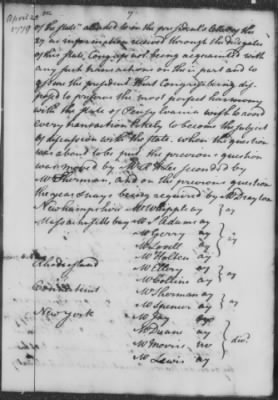 April 20 1779
of the state" alluded to in the president's letter, they
as information received through the delegates
of this state, Congress not being acquainted with
any such transactions on their part and to
assure the president that Congress being dis-
posed to preserve the most perfect harmony
with the state of Pensylvania wish to avoid
every transaction likely to become the subject
of discussion with the state. when the question
was about to be put the previous question
was moved by seconded by
Mr Sherman, and on the previous question
the yeas & nays being required by Mr Drayton
Newhampshire Mr Whipple ay } ay
Massachusetts bay Mr S Adams ay
Mr Gerry ay
Mr Lovell ay
Mr Holten ay
} ay
Rhode island Mr Ellery ay
Mr Collins ay
} ay
Connecticut Mr Sherman ay
Mr Spencer ay
} ay
New york Mr Jay
Mr Duane ay
Mr Morris no
Mr Lewis ay
} div.d